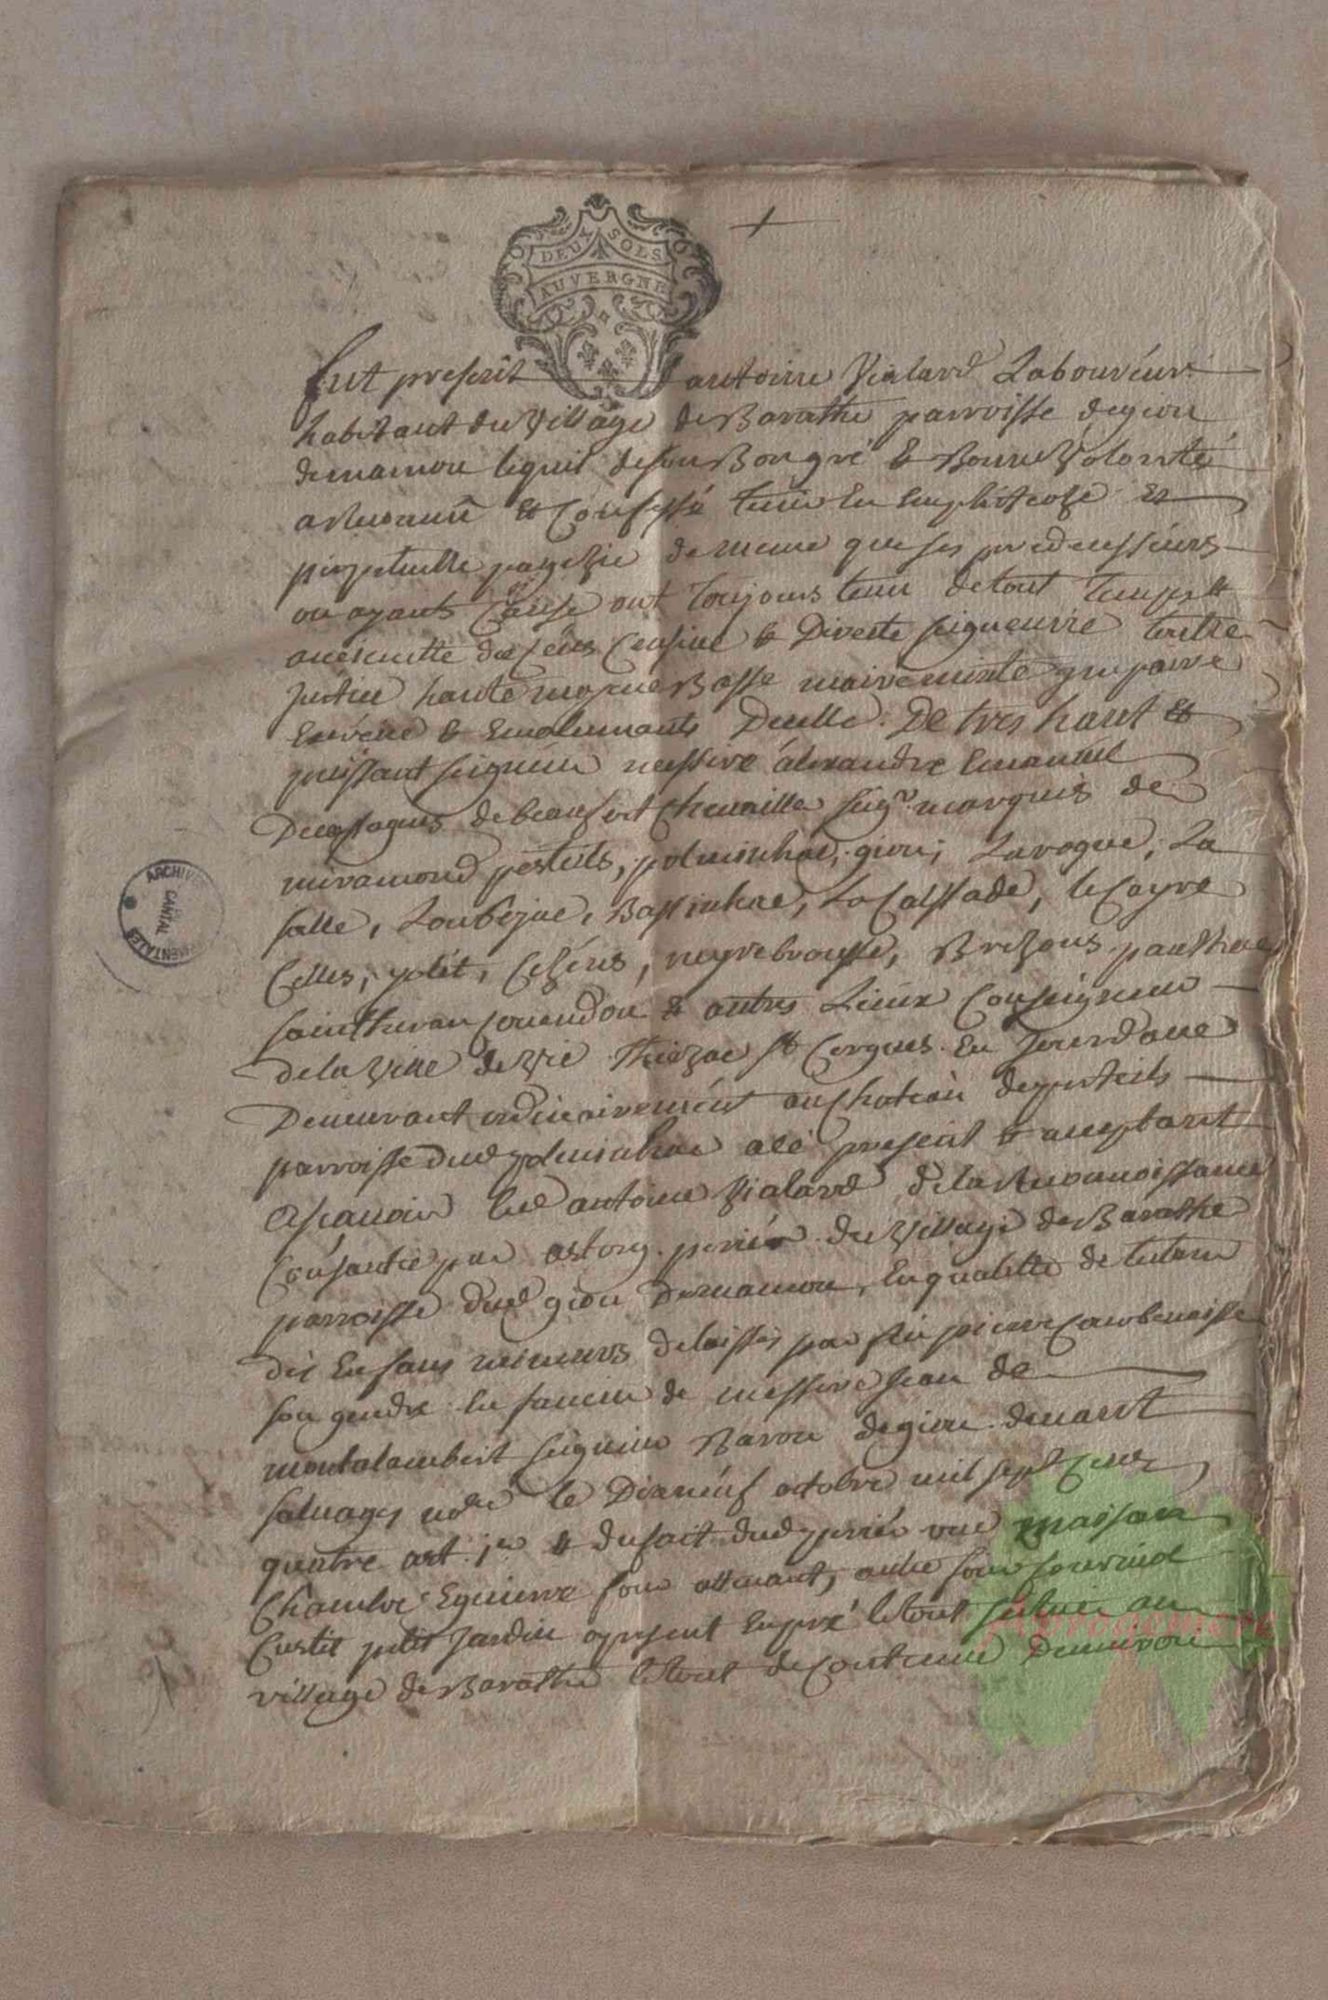 DEUX SOLS
AUVERGNE
fut present antoine Vialard Laboureur
habitant du Village de Barathe parroisse de giou
de mamou lequel de son Bon gré & Bonne Volonté
a reconnu & Confessé tenir En Emphiteose Et
perpetuelle pagezie de meme que ses predecesseurs
ou ayants Cause ont toujours tenu de tout temps &
ancienette des Cens Censive & Directe seigneurie taille
justice haute moyene Basse maire mixte impaire
Exercice & Emolumants D'icelle. De tres haut &
puissant seigneur messire alexandre Emanuel
De cassagnes de beaufort Chevailler seigr. marquis de
miramond pesteils, polminhac, giou, Laroque, La
salle, Loubejac, Bassinhac, La Calssade, le Cayre
Celles, yolet, Cezerns, neyrebrousse, Brezons pauthac
saint heran couendon & autres Lieux Conseigneur
de la Ville de Vic Thiezac St Cirgues En Jourdane
Demeurant ordinairement au Chateau de pesteils
parroisse dud polminhac a cé present & acceptant
Ascavoir led antoine Vialard de la Reconnoissance
Consantie par astorg perier du Village de Barathe
parroisse dud giou De mamou, En qualitte de tuteur
des Enfans mineurs delaissés par feu pierre Caubenaisse
son gendre En faveur de messire Jean de
montalambert seigneur Baron de giou devant
salvages nore le Dixneuf octobre mil sept Cens
quatre art. 1er & du fait dud perier une maison
Chambre Eguiere four attenant, autre four
Custit petit Jardin apresent En pré le tout scitué au
village de Barathe le tout de Contenue D'environ
ARCHIVES
CANTAL
Aprogemere